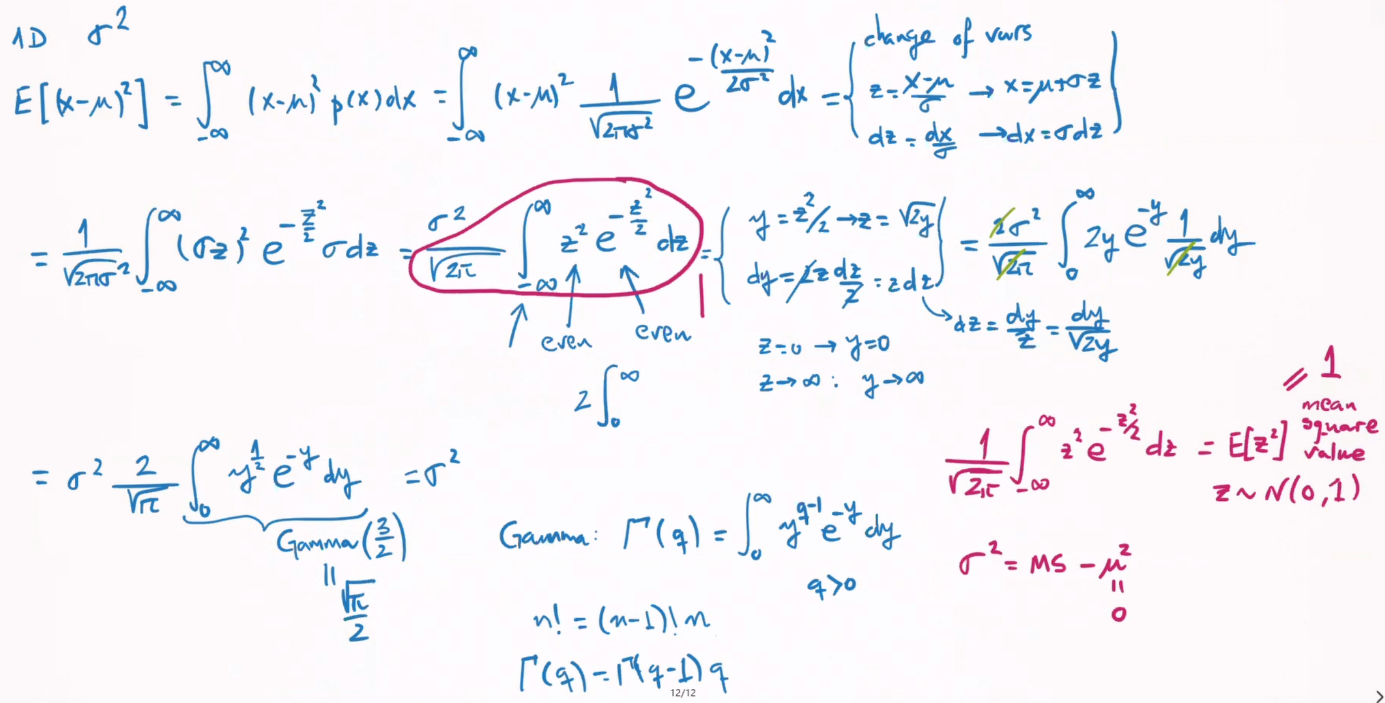 1D σ²
E[(x-μ)²] = ∫_{-∞}^{∞} (x-μ)² p(x)dx = ∫_{-∞}^{∞} (x-μ)² 1/√(2πσ²) e^{-(x-μ)²/2σ²} dx = {
change of vars
z = (x-μ)/σ → x = μ+σz
dz = dx/σ → dx = σdz
}
= 1/√(2πσ²) ∫_{-∞}^{∞} (σz)² e^{-z²/2} σdz = σ²/√(2π) ∫_{-∞}^{∞} z² e^{-z²/2} dz = {
y = z²/2 → z = √(2y)
dy = 2z dz/2 = zdz
} = 2σ²/√(2π) ∫_0^∞ 2y e^{-y} 1/√(2y) dy
→ dz = dy/z = dy/√(2y)
even even
2∫_0^∞
z=0 → y=0
z→∞ : y→∞
= σ² 2/√π ∫_0^∞ y^{1/2} e^{-y} dy = σ²
Gamma(3/2)
||
√π/2
Gamma: Γ(q) = ∫_0^∞ y^{q-1} e^{-y} dy
q>0
n! = (n-1)! n
Γ(q) = Γ(q-1) q
1/√(2π) ∫_{-∞}^{∞} z² e^{-z²/2} dz = E[z²]
= 1
mean
square
value
z ~ N(0,1)
σ² = MS - μ²
||
0
12/12